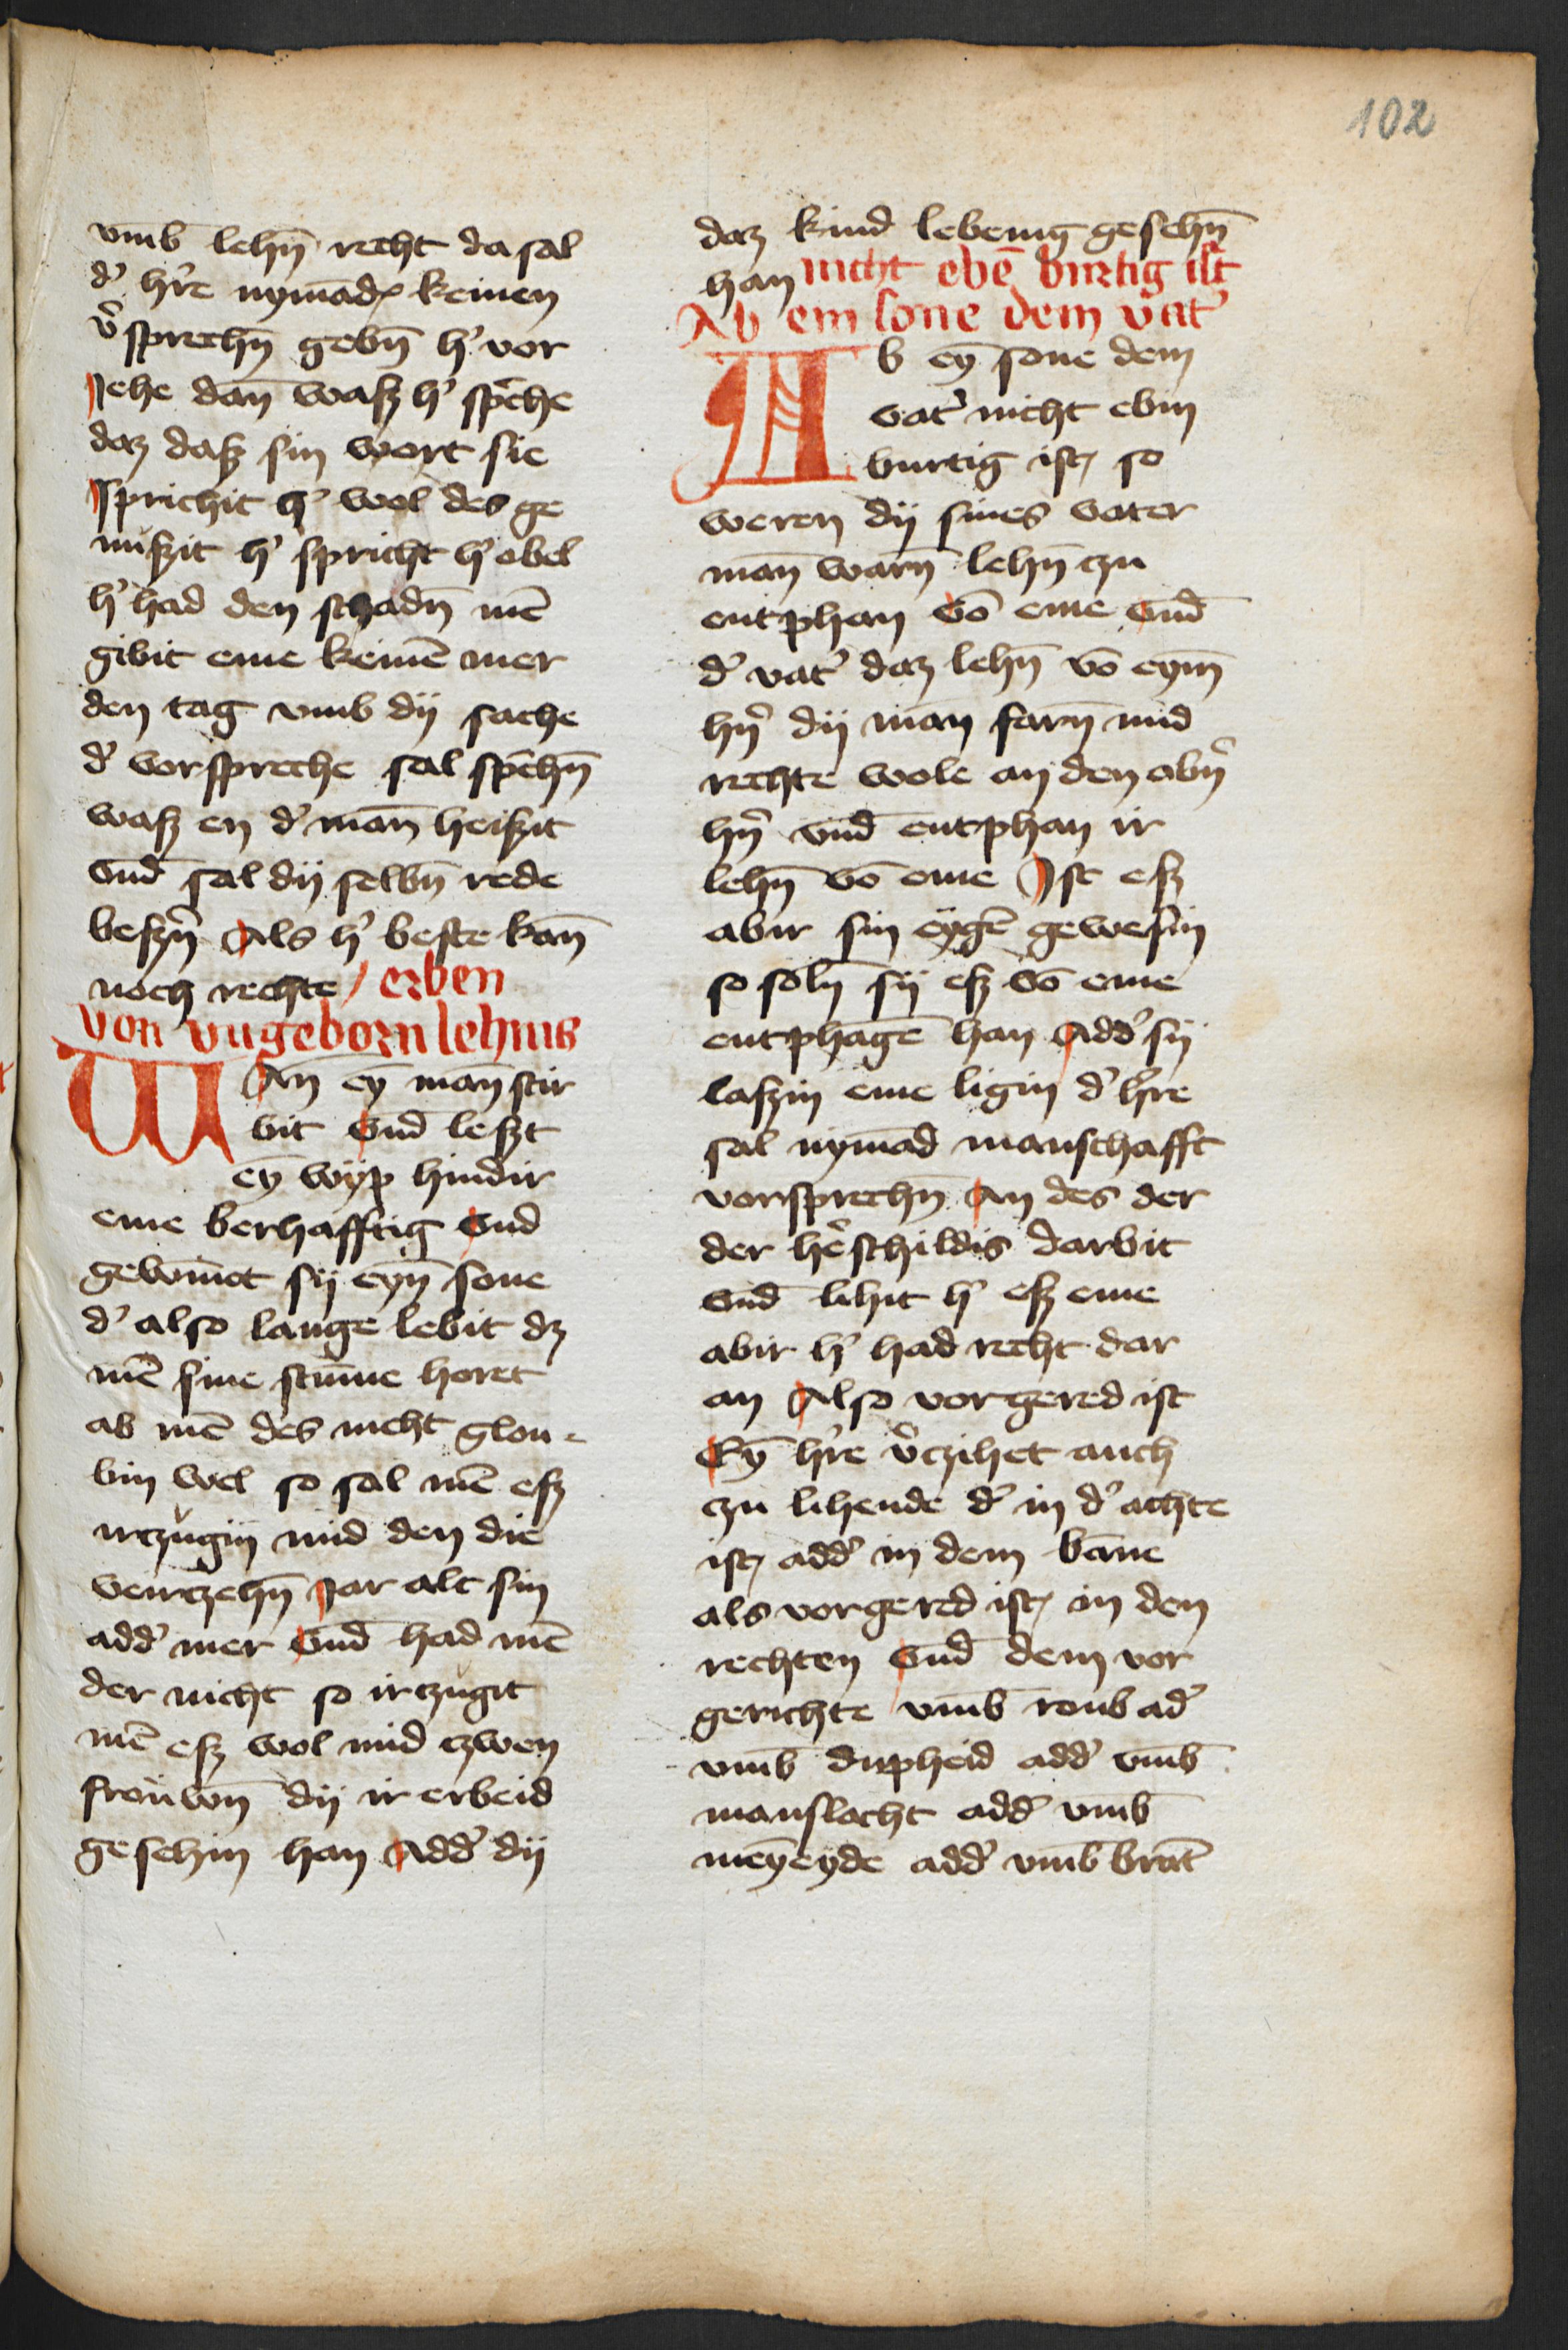 102
vmb lehn̄ recht da sal
d' h're nymād keinen
v'sprechn̄ gebn̄ h' vor
Jehe dan̄ wasz h' sp̄che
daz dasz sin wort sie
Sprichit h' wol des ge
nuszit h' spricht h' obel
h' had den schadn̄ mē
gibit eme keinē mer
den tag vmb dij sache
d' vorspreche sal sp̄chn̄
wasz en d' man̄ heiszit
vnd̄ sal dij selbn̄ rede
beszn̄ Als h' beste kan̄
noch rechte / erben
von vngeborn lehins
WAn̄ eȳ man̄ stir
bit vnd̄ leszt
eȳ wijp hindir
eme berhafftig vnd
gewinnot sij eyn̄ sone
d' also lange lebit dz
mē sine stim̄e horet
ab mē des nicht glou-
bin wel so sal mē esz
irczugin mid den die
veirczehn̄ Jar alt sin
add' mer vnd̄ had mē
der nicht so irczugit
mē esz wol mid czwen
frouwn̄ dij ir erbeid
gesehin han Add' dij
daz kind lebenig gesehn̄
han nicht ebē burtig ist
Ab ein sone dem vat'
Ab eȳ sone dem
vat' nicht ebin
burtig ist so
weren dij sines vater
man̄ warn̄ lehn̄ czu
entphan vō eme vnd̄
d' vat' daz lehn̄ vō eym̄
hn̄' dij man farn̄ mid
rechte wole an den obn̄'
hn̄' vnd̄ entphan ir
lehn̄ vō eme Ist esz
abir sin eygē gewesin
so soln̄ sij esz vō eme
entphagē han Add' sij
laszin eme ligin d' h're
sal nymād manschafft
vorsprechn̄ An des der
der he'schildis darbit
vnd̄ lihit h' esz eme
abir h' had recht dar
an Also vorgered ist
Eȳ h're v'czihet auch
czu lihende d' in d' achte
ist add' in dem bāne
als vorgered ist in den
rechten vnd̄ dem vor
gerichte vmb roub ad'
vmb dupheid add' vmb
manslacht add' vmb
meȳeyde add' vmb brāt